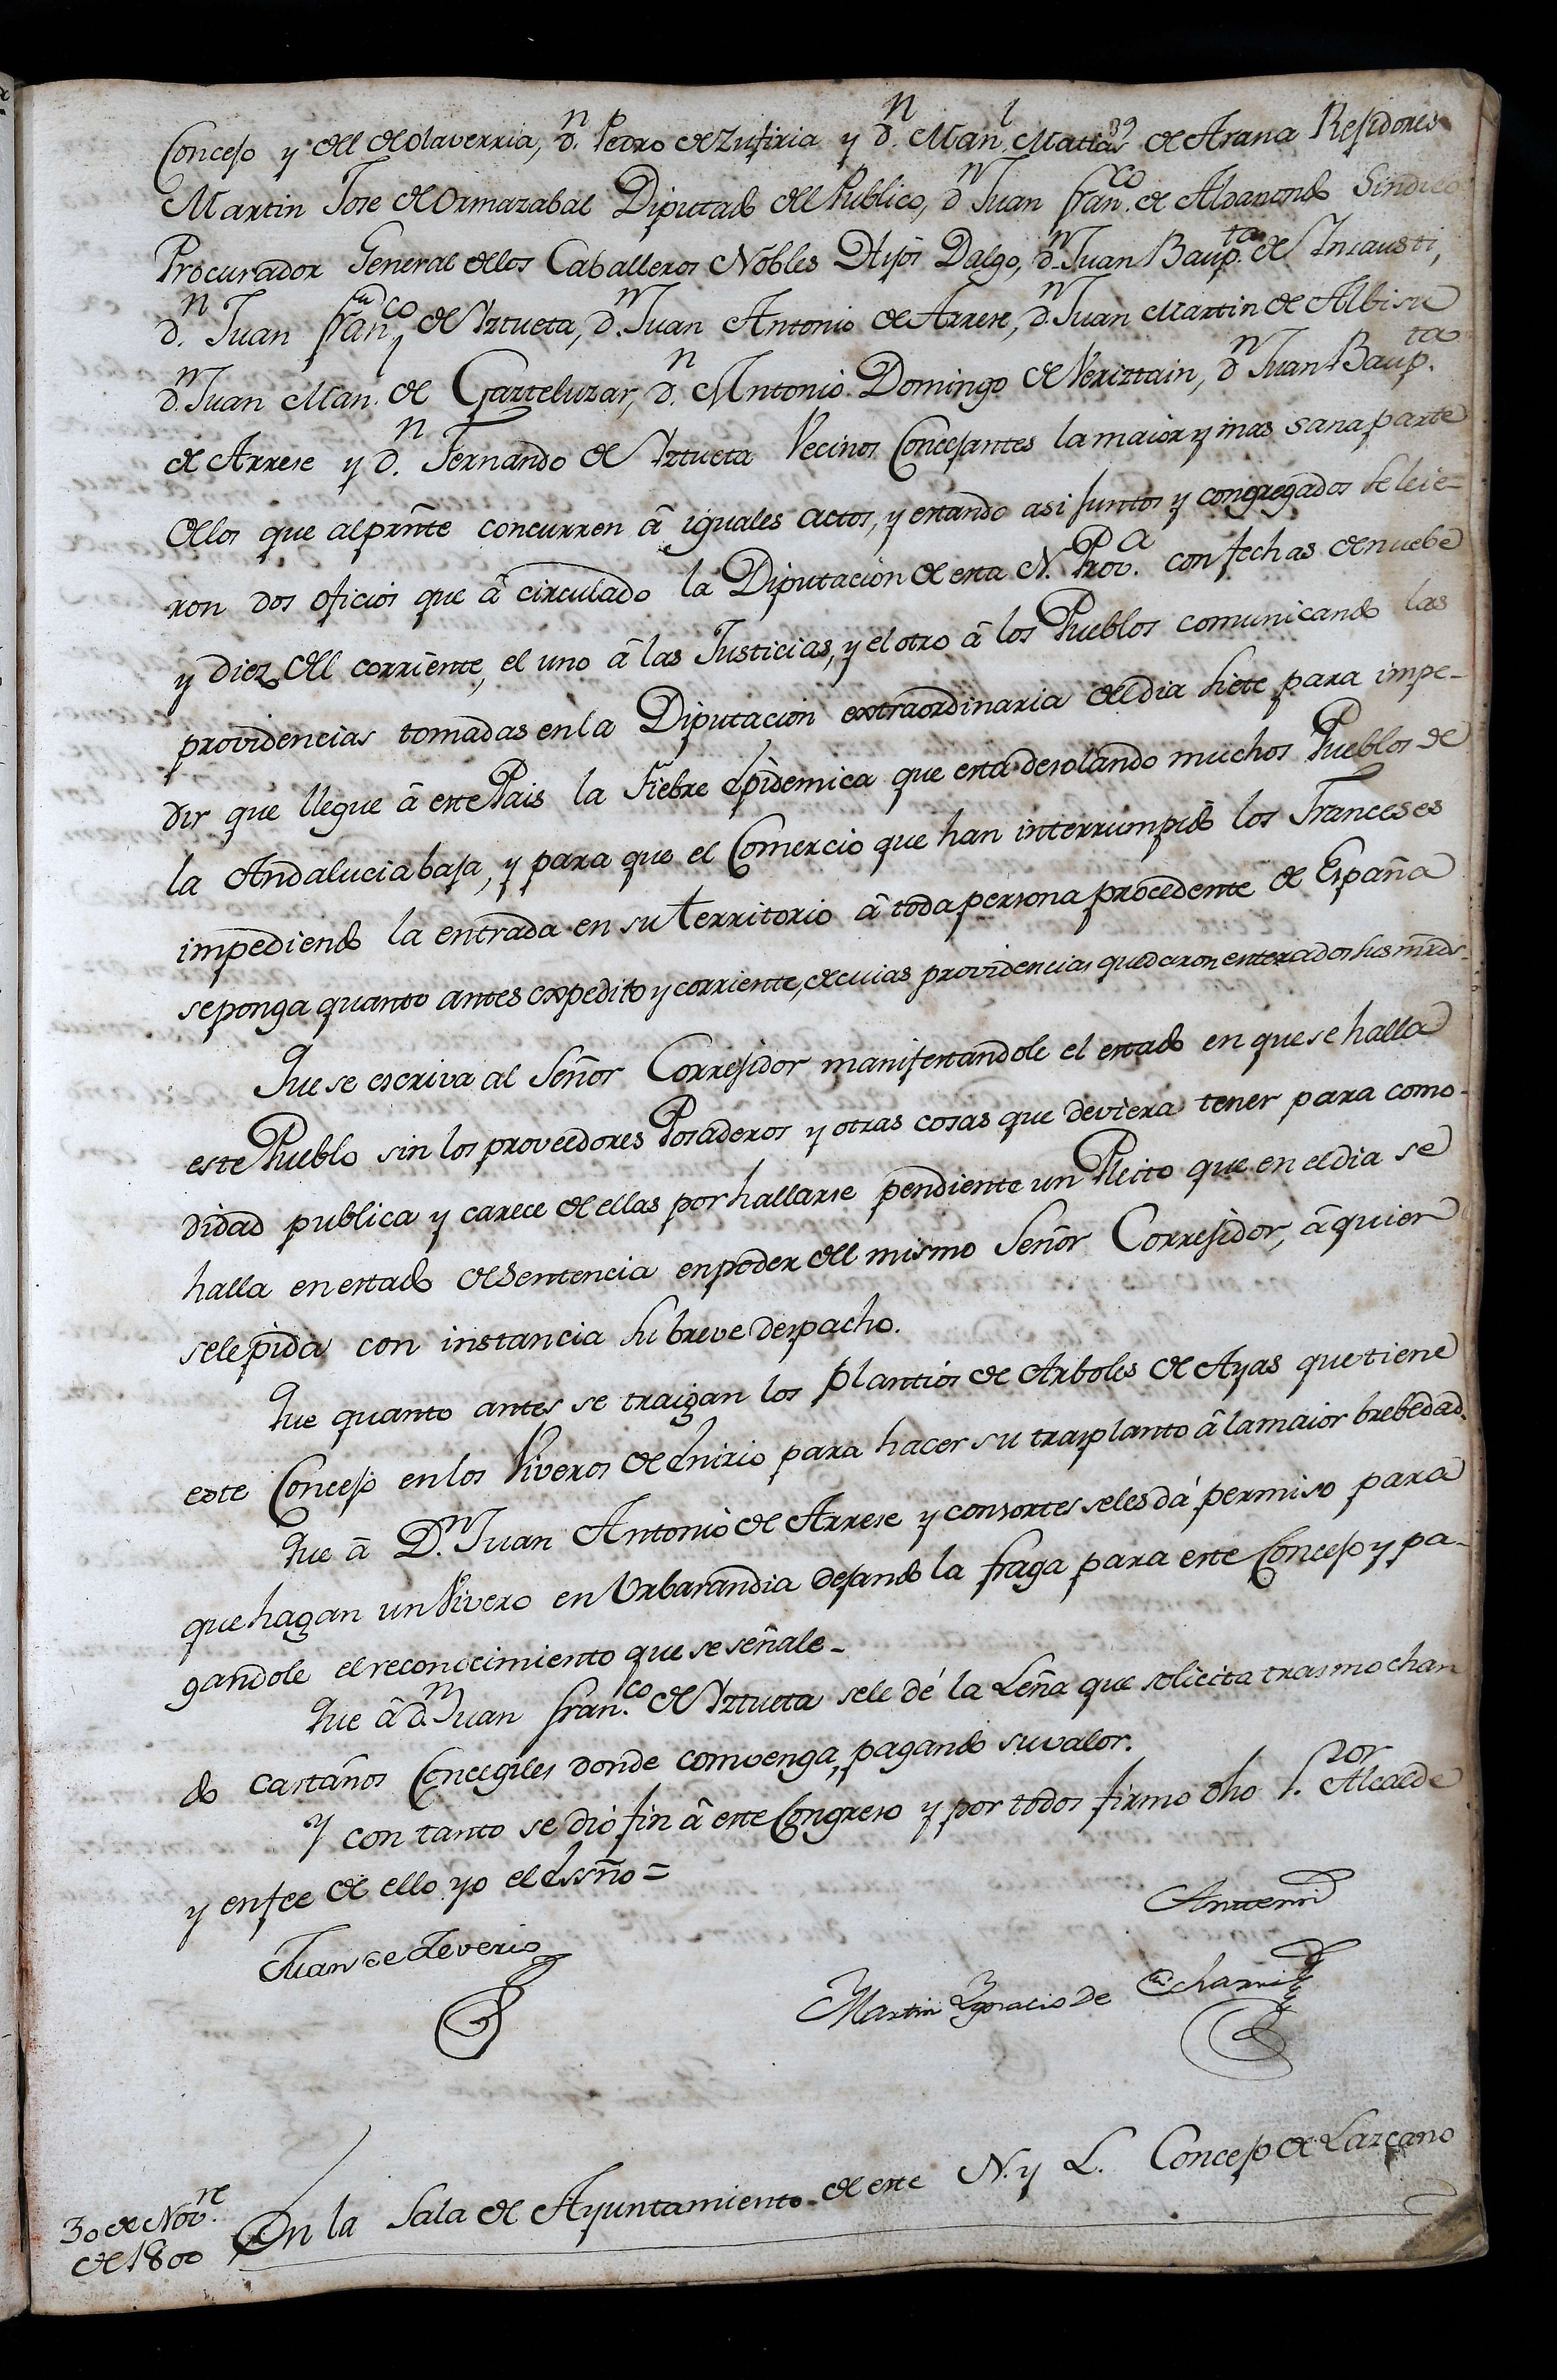 Concejo y del de Olaverria, d.n Pedro de Zufiria y d.n Man.l Matias de Arana Rejidores
Martin Jose de Ormazabal Diputado del Publico, d.n Juan fran.co de Aldanondo Sindico
Procurador General de los Caballeros Nobles Hijos Dalgo, d.n Juan Baup.ta de Incausti,
d.n Juan fran.co de Yztueta, d.n Juan Antonio de Arrese, d.n Juan Martin de Albisu
d.n Juan Man.l de Garteluzar, d.n Antonio Domingo de Veriztain, d.n Juan Baup.ta
de Arrese y d.n Fernando de Yztueta Vecinos Concejantes la maior y mas sana parte
de los que al prñte concurren â iguales actos, y estando asi juntos y congregados se leie=
ron dos oficios que â circulado la Diputacion de esta N. Prov.a con fechas de nuebe
y diez del corriente, el uno â las Justicias, y el otro â los Pueblos comunicando las
providencias tomadas en la Diputacion extraordinaria del dia siete para impe-
dir que llegue â este Pais la Fiebre epidemica que esta desolando muchos Pueblos de
la Andalucia baja, y para que el Comercio que han interrumpido los Franceses
impediendo la entrada en su territorio â toda persona procedente de España
se ponga quanto antes expedito y corriente, de cuias providencias quedaron enterados sus mrds.
Que se escriva al Señor Correjidor manifestandole el estado en que se halla
este Pueblo sin los proveedores Posaderos y otras cosas que deviera tener para como-
didad publica y carece de ellas por hallarse pendiente un Pleito que en el dia se
halla en estado de Sentencia en poder del mismo Señor Correjidor, â quien
se le pida con instancia su breve despacho.
Que quanto antes se traigan los plantios de Arboles de Ayas que tiene
este Concejo en los Viveros de Enirio para hacer su trasplanto â la maior brebedad.
Que â D.n Juan Antonio de Arrese y consortes se les dá permiso para
que hagan un Vivero en Urbarandia dejando la fraga para este Concejo y pa-
gandole el reconocimiento que se señale-
Que â d.n Juan fran.co de Yztueta se le dé la Leña que solicita trasmochan
do castaños Concegiles donde convenga, pagando su valor.
Y con tanto se dió fin â este Congreso y por todos firmo dho S.or Alcalde
y en fee de ello yo el Essño=
Antemi
Juan de Teveris
Martin Ygnacio de Echarri
30 de Nov.re
de 1800
En la Sala de Ayuntamiento de este N. y L. Concejo de Lazcano